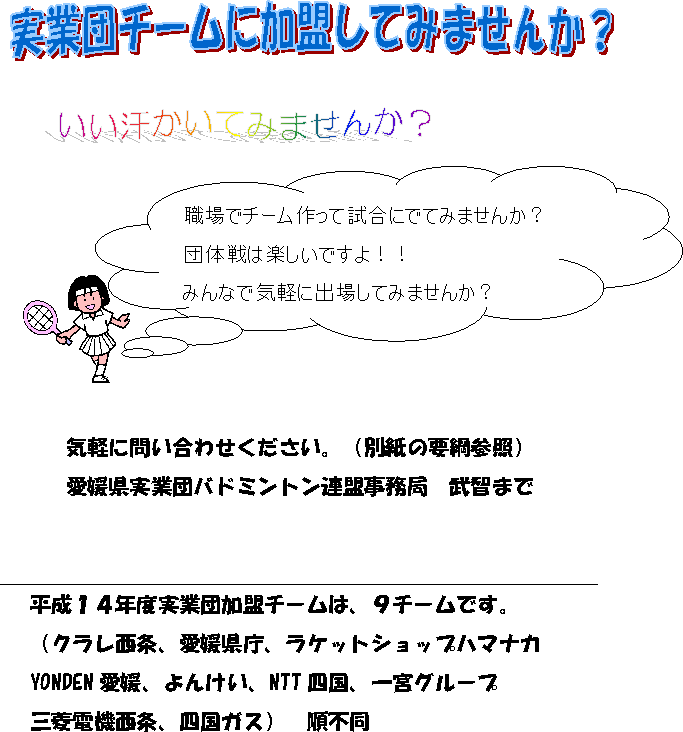 実業団チームに加盟してみませんか?
いい汗かいてみませんか?
職場でチーム作って試合にでてみませんか?
団体戦は楽しいですよ！！
みんなで気軽に出場してみませんか?
気軽に問い合わせください。（別紙の要綱参照）
愛媛県実業団バドミントン連盟事務局　武智まで
平成１４年度実業団加盟チームは、９チームです。
（クラレ西条、愛媛県庁、ラケットショップハマナカ
YONDEN愛媛、よんけい、NTT四国、一宮グループ
三菱電機西条、四国ガス）　順不同